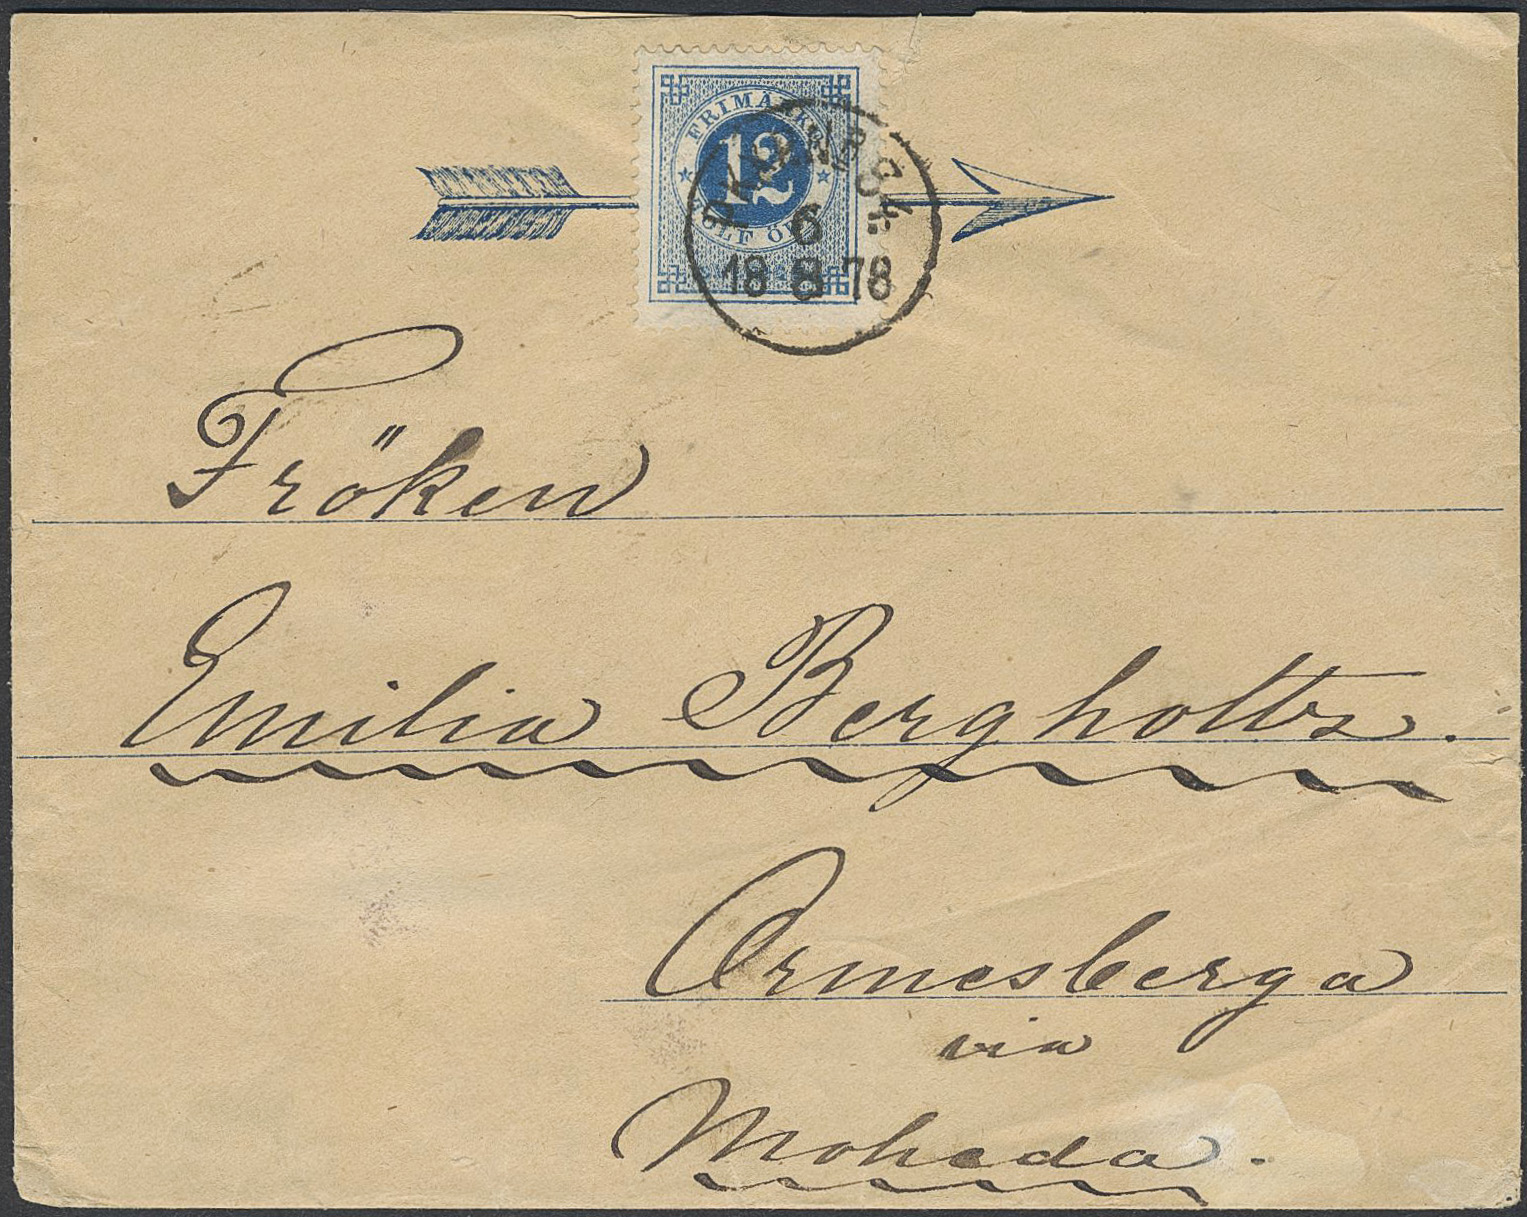 FRIMÄRKE
12
TOLF ÖRE
6
18 8 78
Fröken
Emilia Bergholtz.
Ormesberga
via
Moheda.